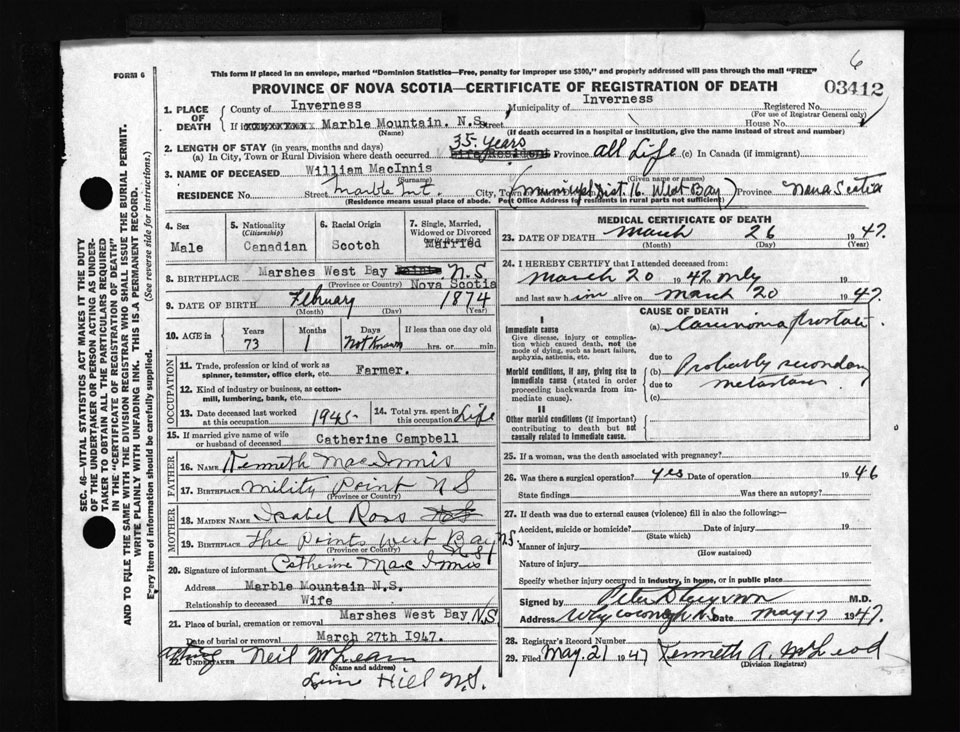 6
FORM 6
This form if placed in an envelope, marked "Dominion Statistics—Free, penalty for improper use $300," and properly addressed will pass through the mail "FREE"
PROVINCE OF NOVA SCOTIA—CERTIFICATE OF REGISTRATION OF DEATH
03412
1. PLACE OF DEATH
County of Inverness Municipality of Inverness Registered No.
(For use of Registrar General only)
If in Marble Mountain. N.S. Street House No.
(Name) (If death occurred in a hospital or institution, give the name instead of street and number)
2. LENGTH OF STAY (in years, months and days)
(a) In City, Town or Rural Division where death occurred 35 years Life Resident Province all Life (c) In Canada (if immigrant)
3. NAME OF DECEASED William MacInnis
(Surname) (Given name or names)
RESIDENCE No. Street Marble Mt. City, Town (Municipal Dist. 16. West Bay) Province Nova Scotia
(Residence means usual place of abode. Post Office Address for residents in rural parts not sufficient)
4. Sex Male
5. Nationality (Citizenship) Canadian
6. Racial Origin Scotch
7. Single, Married, Widowed or Divorced Married
8. BIRTHPLACE Marshes West Bay N.S
(Province or Country) Nova Scotia
9. DATE OF BIRTH February 1874
(Month) (Day) (Year)
10. AGE in Years 73 Months 1 Days Not Known If less than one day old hrs. or min.
OCCUPATION
11. Trade, profession or kind of work as spinner, teamster, office clerk, etc. Farmer.
12. Kind of industry or business, as cotton-mill, lumbering, bank, etc.
13. Date deceased last worked at this occupation 1945- 14. Total yrs. spent in this occupation Life
15. If married give name of wife or husband of deceased Catherine Campbell
FATHER
16. Name Kenneth MacInnis
17. Birthplace Mility Point N S
(Province or Country)
MOTHER
18. Maiden Name Isabel Ross
19. Birthplace The Points West Bay N.S.
(Province or Country) N S
20. Signature of informant Catherine MacInnis
Address Marble Mountain N.S.
Relationship to deceased Wife
21. Place of burial, cremation or removal Marshes West Bay N.S
Date of burial or removal March 27th 1947.
Acting
22. UNDERTAKER Neil McLean
(Name and address)
Lime Hill N.S.
MEDICAL CERTIFICATE OF DEATH
23. DATE OF DEATH March 26 1947.
(Month) (Day) (Year)
24. I HEREBY CERTIFY that I attended deceased from:
March 20 1947 only 19
and last saw him alive on March 20 1947.
CAUSE OF DEATH
I
Immediate cause
Give disease, injury or complication which caused death, not the mode of dying, such as heart failure, asphyxia, asthenia, etc.
(a) Carcinoma Prostate
due to
Morbid conditions, if any, giving rise to immediate cause (stated in order proceeding backwards from immediate cause).
(b) Probably secondary
due to metastases
(c)
II
Other morbid conditions (if important) contributing to death but not causally related to immediate cause.
25. If a woman, was the death associated with pregnancy?
26. Was there a surgical operation? yes Date of operation 1946
State findings Was there an autopsy?
27. If death was due to external causes (violence) fill in also the following:—
Accident, suicide or homicide? Date of injury 19
(State which)
Manner of injury
(How sustained)
Nature of injury
Specify whether injury occurred in industry, in home, or in public place
Signed by M.D.
Address Whycocomagh N S Date May 17 1947
28. Registrar's Record Number
29. Filed May. 21 1947 Kenneth A. McLeod
(Division Registrar)
SEC. 46—VITAL STATISTICS ACT MAKES IT THE DUTY
OF THE UNDERTAKER OR PERSON ACTING AS UNDER-
TAKER TO OBTAIN ALL THE PARTICULARS REQUIRED
IN THE "CERTIFICATE OF REGISTRATION OF DEATH"
AND TO FILE THE SAME WITH THE DIVISION REGISTRAR WHO SHALL ISSUE THE BURIAL PERMIT.
WRITE PLAINLY WITH UNFADING INK. THIS IS A PERMANENT RECORD.
Every item of information should be carefully supplied. (See reverse side for instructions.)